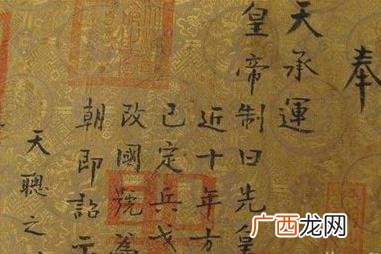 奉
天承運
皇帝制曰先皇
近十年方
已定兵戈
改國號為
朝即詔示
天聰之
广西龙网